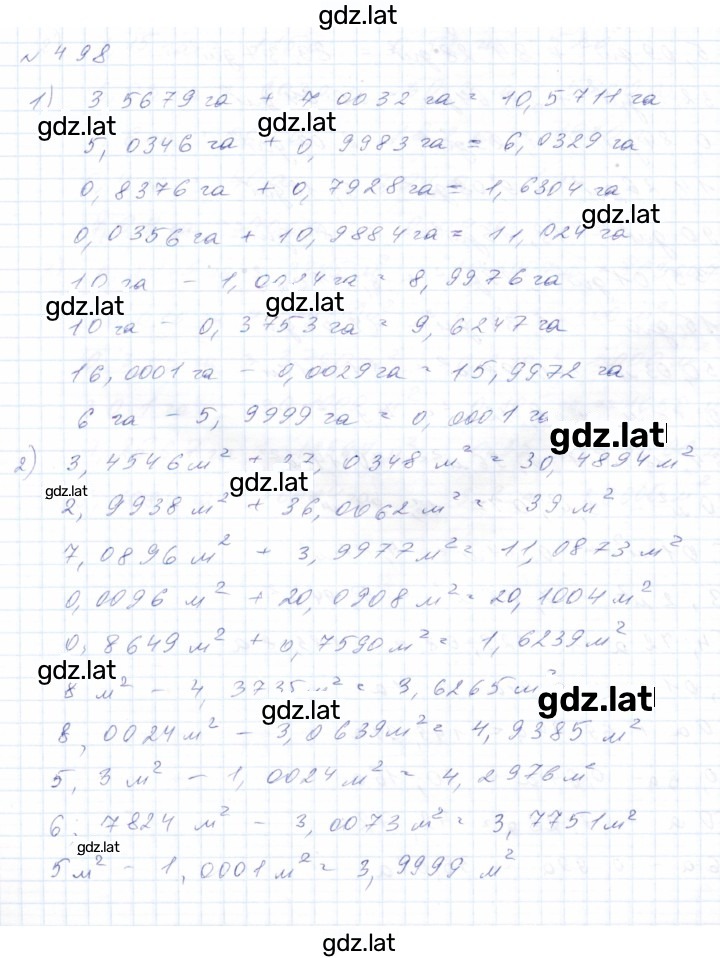 gdz.lat
№ 498
1) 3 5679 га + 7 0032 га = 10,5711 га
gdz.lat gdz.lat
5,0346 га + 0,9983 га = 6,0329 га
0,8376 га + 0,7928 га = 1,6304 га
gdz.lat
0,0356 га + 10,9884 га = 11,024 га
10 га - 1,0024 га = 8,9976 га
gdz.lat gdz.lat
10 га - 0,3753 га = 9,6247 га
16,0001 га - 0,0029 га = 15,9972 га
6 га - 5,9999 га = 0,0001 га
gdz.lat
2) 3,4546 м² + 27,0348 м² = 30,4894 м²
gdz.lat gdz.lat
2,9938 м² + 36,0062 м² = 39 м²
7,0896 м² + 3,9977 м² = 11,0873 м²
0,0096 м² + 20,0908 м² = 20,1004 м²
0,8649 м² + 0,7590 м² = 1,6239 м²
gdz.lat
8 м² - 4,3735 м² = 3,6265 м²
gdz.lat gdz.lat
8,0024 м² - 3,0639 м² = 4,9385 м²
5,3 м² - 1,0024 м² = 4,2976 м²
6,7824 м² - 3,0073 м² = 3,7751 м²
gdz.lat
5 м² - 1,0001 м² = 3,9999 м²
gdz.lat